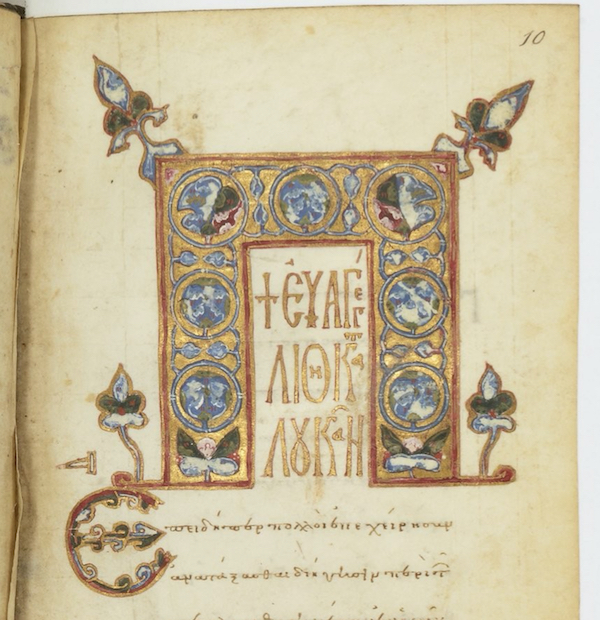 10
+ ΕΥΑΓΓΕ
ΛΙΟΝ ΚΤᾺ
ΛȢΚᾶΝ
Ἐπειδήπερ πολλοὶ ἐπεχείρησαν
ἀνατάξασθαι διήγησιν περὶ τ